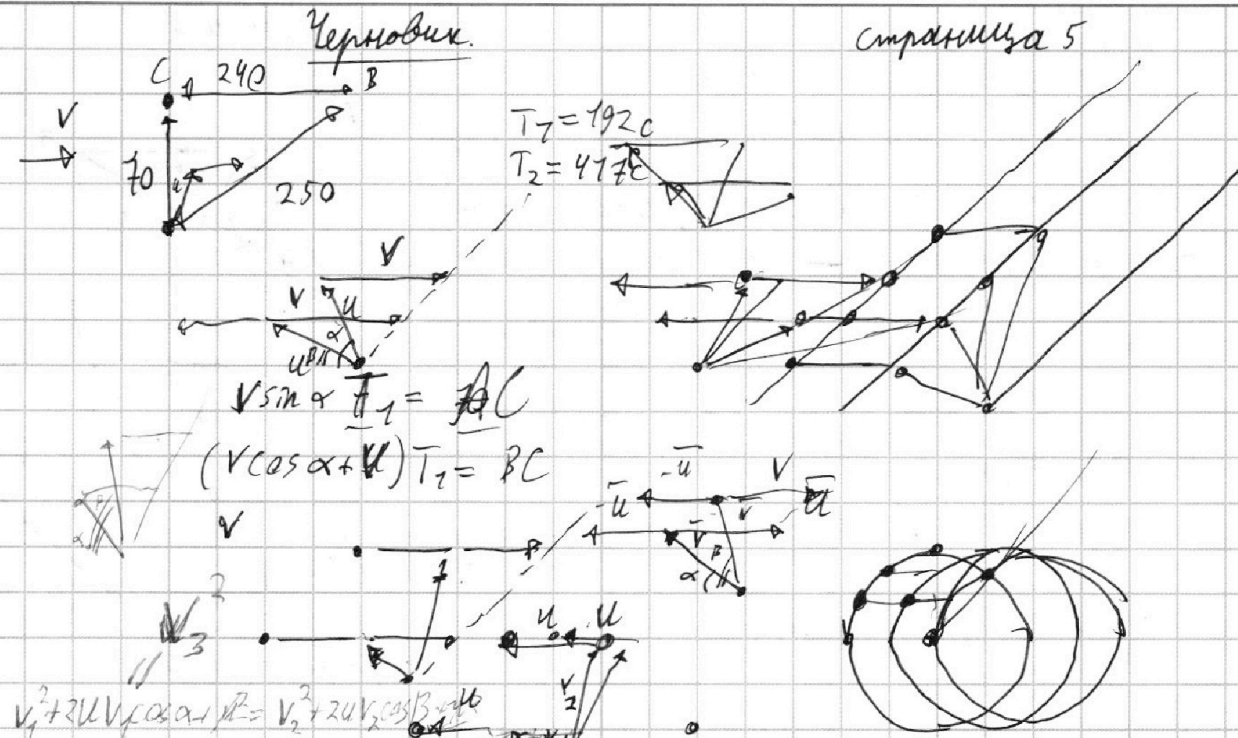 Черновик.
страница 5
C 240 B
V
70
250
T₁ = 192 с
T₂ = 417 с
V
V u
α
u β
V sin α T₁ = AC
(V cos α + U) T₁ = BC
-ū V
-ū v̄ ū
v̄ β
α
V
u U
V₂
V₃²
V₁² + 2UV₁cos α + U² = V₂² + 2uV₂cos β